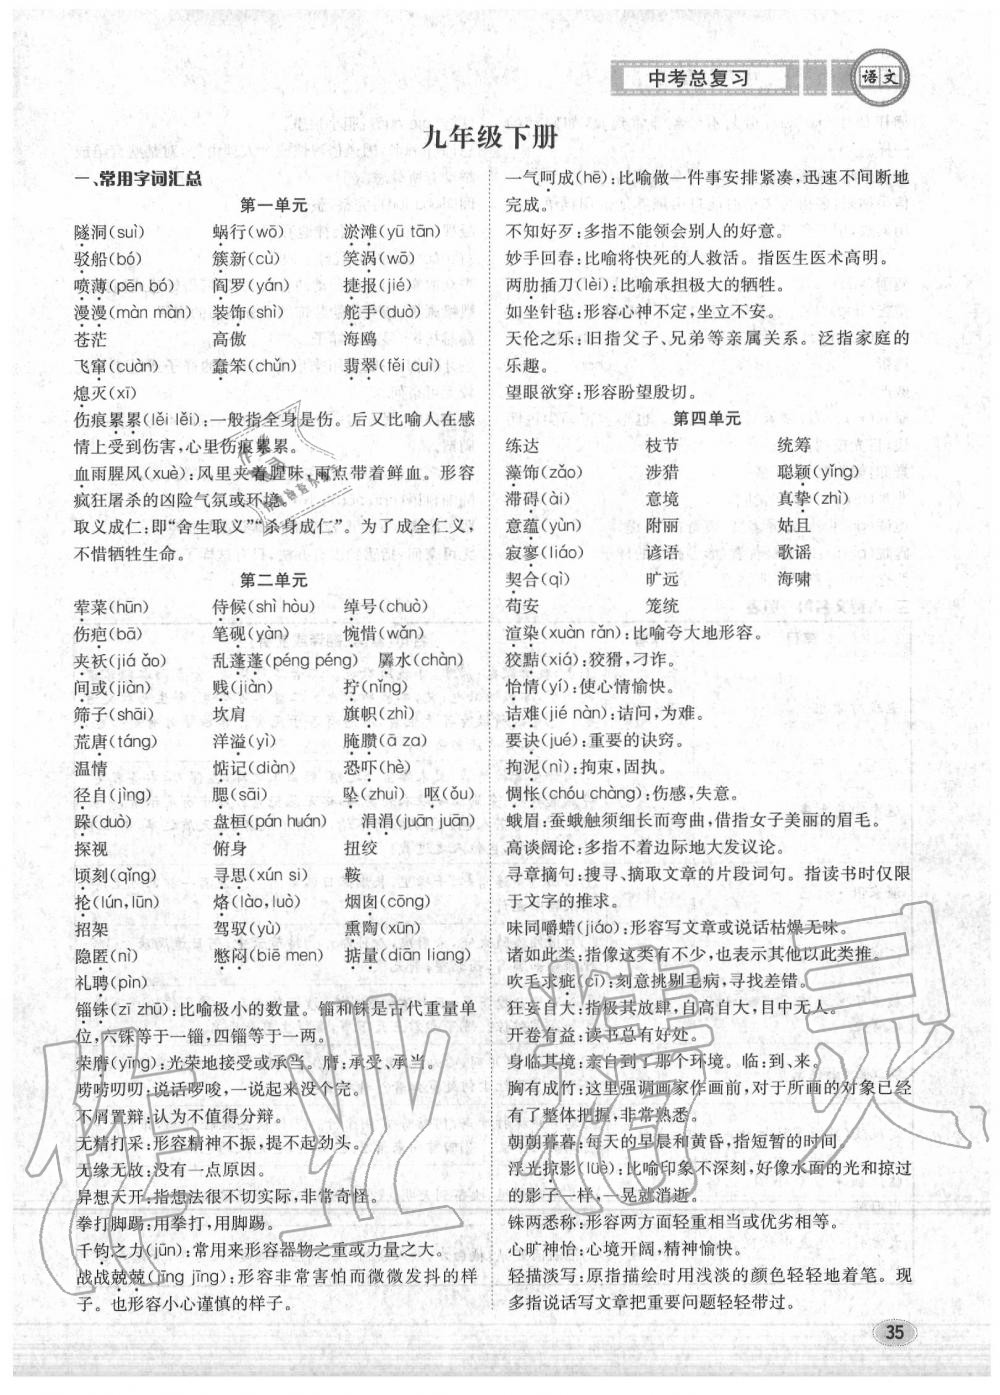 中考总复习
语文
九年级下册
一、常用字词汇总
第一单元
隧洞(suì) 蜗行(wō) 淤滩(yū tān)
驳船(bó) 簇新(cù) 笑涡(wō)
喷薄(pēn bó) 阎罗(yán) 捷报(jié)
漫漫(màn màn) 装饰(shì) 舵手(duò)
苍茫 高傲 海鸥
飞窜(cuàn) 蠢笨(chǔn) 翡翠(fěi cuì)
熄灭(xī)
伤痕累累(lěi lěi):一般指全身是伤。后又比喻人在感
情上受到伤害,心里伤痕累累。
血雨腥风(xuè):风里夹着腥味,雨点带着鲜血。形容
疯狂屠杀的凶险气氛或环境。
取义成仁:即“舍生取义”“杀身成仁”。为了成全仁义,
不惜牺牲生命。
第二单元
荤菜(hūn) 侍候(shì hòu) 绰号(chuò)
伤疤(bā) 笔砚(yàn) 惋惜(wǎn)
夹袄(jiá ǎo) 乱蓬蓬(péng péng) 羼水(chàn)
间或(jiàn) 贱(jiàn) 拧(nǐng)
筛子(shāi) 坎肩 旗帜(zhì)
荒唐(táng) 洋溢(yì) 腌臜(ā za)
温情 惦记(diàn) 恐吓(hè)
径自(jìng) 腮(sāi) 坠(zhuì) 呕(ǒu)
跺(duò) 盘桓(pán huán) 涓涓(juān juān)
探视 俯身 扭绞
顷刻(qǐng) 寻思(xún si) 鞍
抡(lún,lūn) 烙(lào,luò) 烟囱(cōng)
招架 驾驭(yù) 熏陶(xūn)
隐匿(nì) 憋闷(biē men) 掂量(diān liang)
礼聘(pìn)
锱铢(zī zhū):比喻极小的数量。锱和铢是古代重量单
位,六铢等于一锱,四锱等于一两。
荣膺(yīng):光荣地接受或承当。膺:承受、承当。
唠唠叨叨:说话啰唆,一说起来没个完。
不屑置辩:认为不值得分辩。
无精打采:形容精神不振,提不起劲头。
无缘无故:没有一点原因。
异想天开:指想法很不切实际,非常奇怪。
拳打脚踢:用拳打,用脚踢。
千钧之力(jūn):常用来形容器物之重或力量之大。
战战兢兢(jīng jīng):形容非常害怕而微微发抖的样
子。也形容小心谨慎的样子。
一气呵成(hē):比喻做一件事安排紧凑,迅速不间断地
完成。
不知好歹:多指不能领会别人的好意。
妙手回春:比喻将快死的人救活。指医生医术高明。
两肋插刀(lèi):比喻承担极大的牺牲。
如坐针毡:形容心神不定,坐立不安。
天伦之乐:旧指父子、兄弟等亲属关系。泛指家庭的
乐趣。
望眼欲穿:形容盼望殷切。
第四单元
练达 枝节 统筹
藻饰(zǎo) 涉猎 聪颖(yǐng)
滞碍(ài) 意境 真挚(zhì)
意蕴(yùn) 附丽 姑且
寂寥(liáo) 谚语 歌谣
契合(qì) 旷远 海啸
苟安 笼统
渲染(xuàn rǎn):比喻夸大地形容。
狡黠(xiá):狡猾,刁诈。
怡情(yí):使心情愉快。
诘难(jié nàn):诘问,为难。
要诀(jué):重要的诀窍。
拘泥(nì):拘束,固执。
惆怅(chóu chàng):伤感,失意。
蛾眉:蚕蛾触须细长而弯曲,借指女子美丽的眉毛。
高谈阔论:多指不着边际地大发议论。
寻章摘句:搜寻、摘取文章的片段词句。指读书时仅限
于文字的推求。
味同嚼蜡(jiáo):形容写文章或说话枯燥无味。
诸如此类:指像这类有不少,也表示其他以此类推。
吹毛求疵(cī):刻意挑剔毛病,寻找差错。
狂妄自大:指极其放肆,自高自大,目中无人。
开卷有益:读书总有好处。
身临其境:亲自到了那个环境。临:到、来。
胸有成竹:这里强调画家作画前,对于所画的对象已经
有了整体把握,非常熟悉。
朝朝暮暮:每天的早晨和黄昏,指短暂的时间。
浮光掠影(lüè):比喻印象不深刻,好像水面的光和掠过
的影子一样,一晃就消逝。
铢两悉称:形容两方面轻重相当或优劣相等。
心旷神怡:心境开阔,精神愉快。
轻描淡写:原指描绘时用浅淡的颜色轻轻地着笔。现
多指说话写文章把重要问题轻轻带过。
35
作业精灵